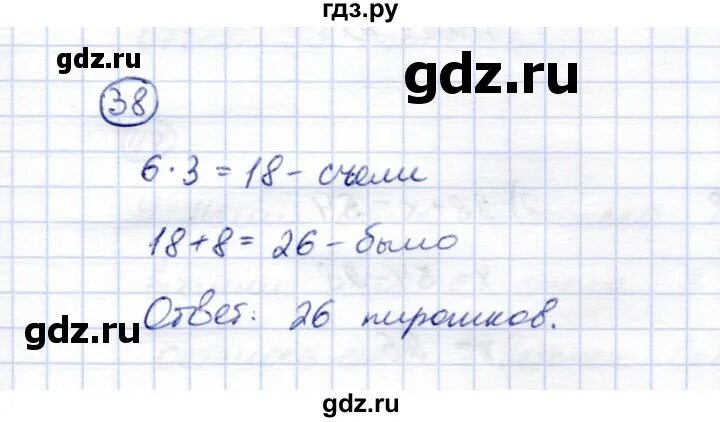 гдз.ру
gdz.ru
gdz.ru
38
6 · 3 = 18 - съели
18 + 8 = 26 - было
gdz.ru
Ответ: 26 пирожков.
gdz.ru